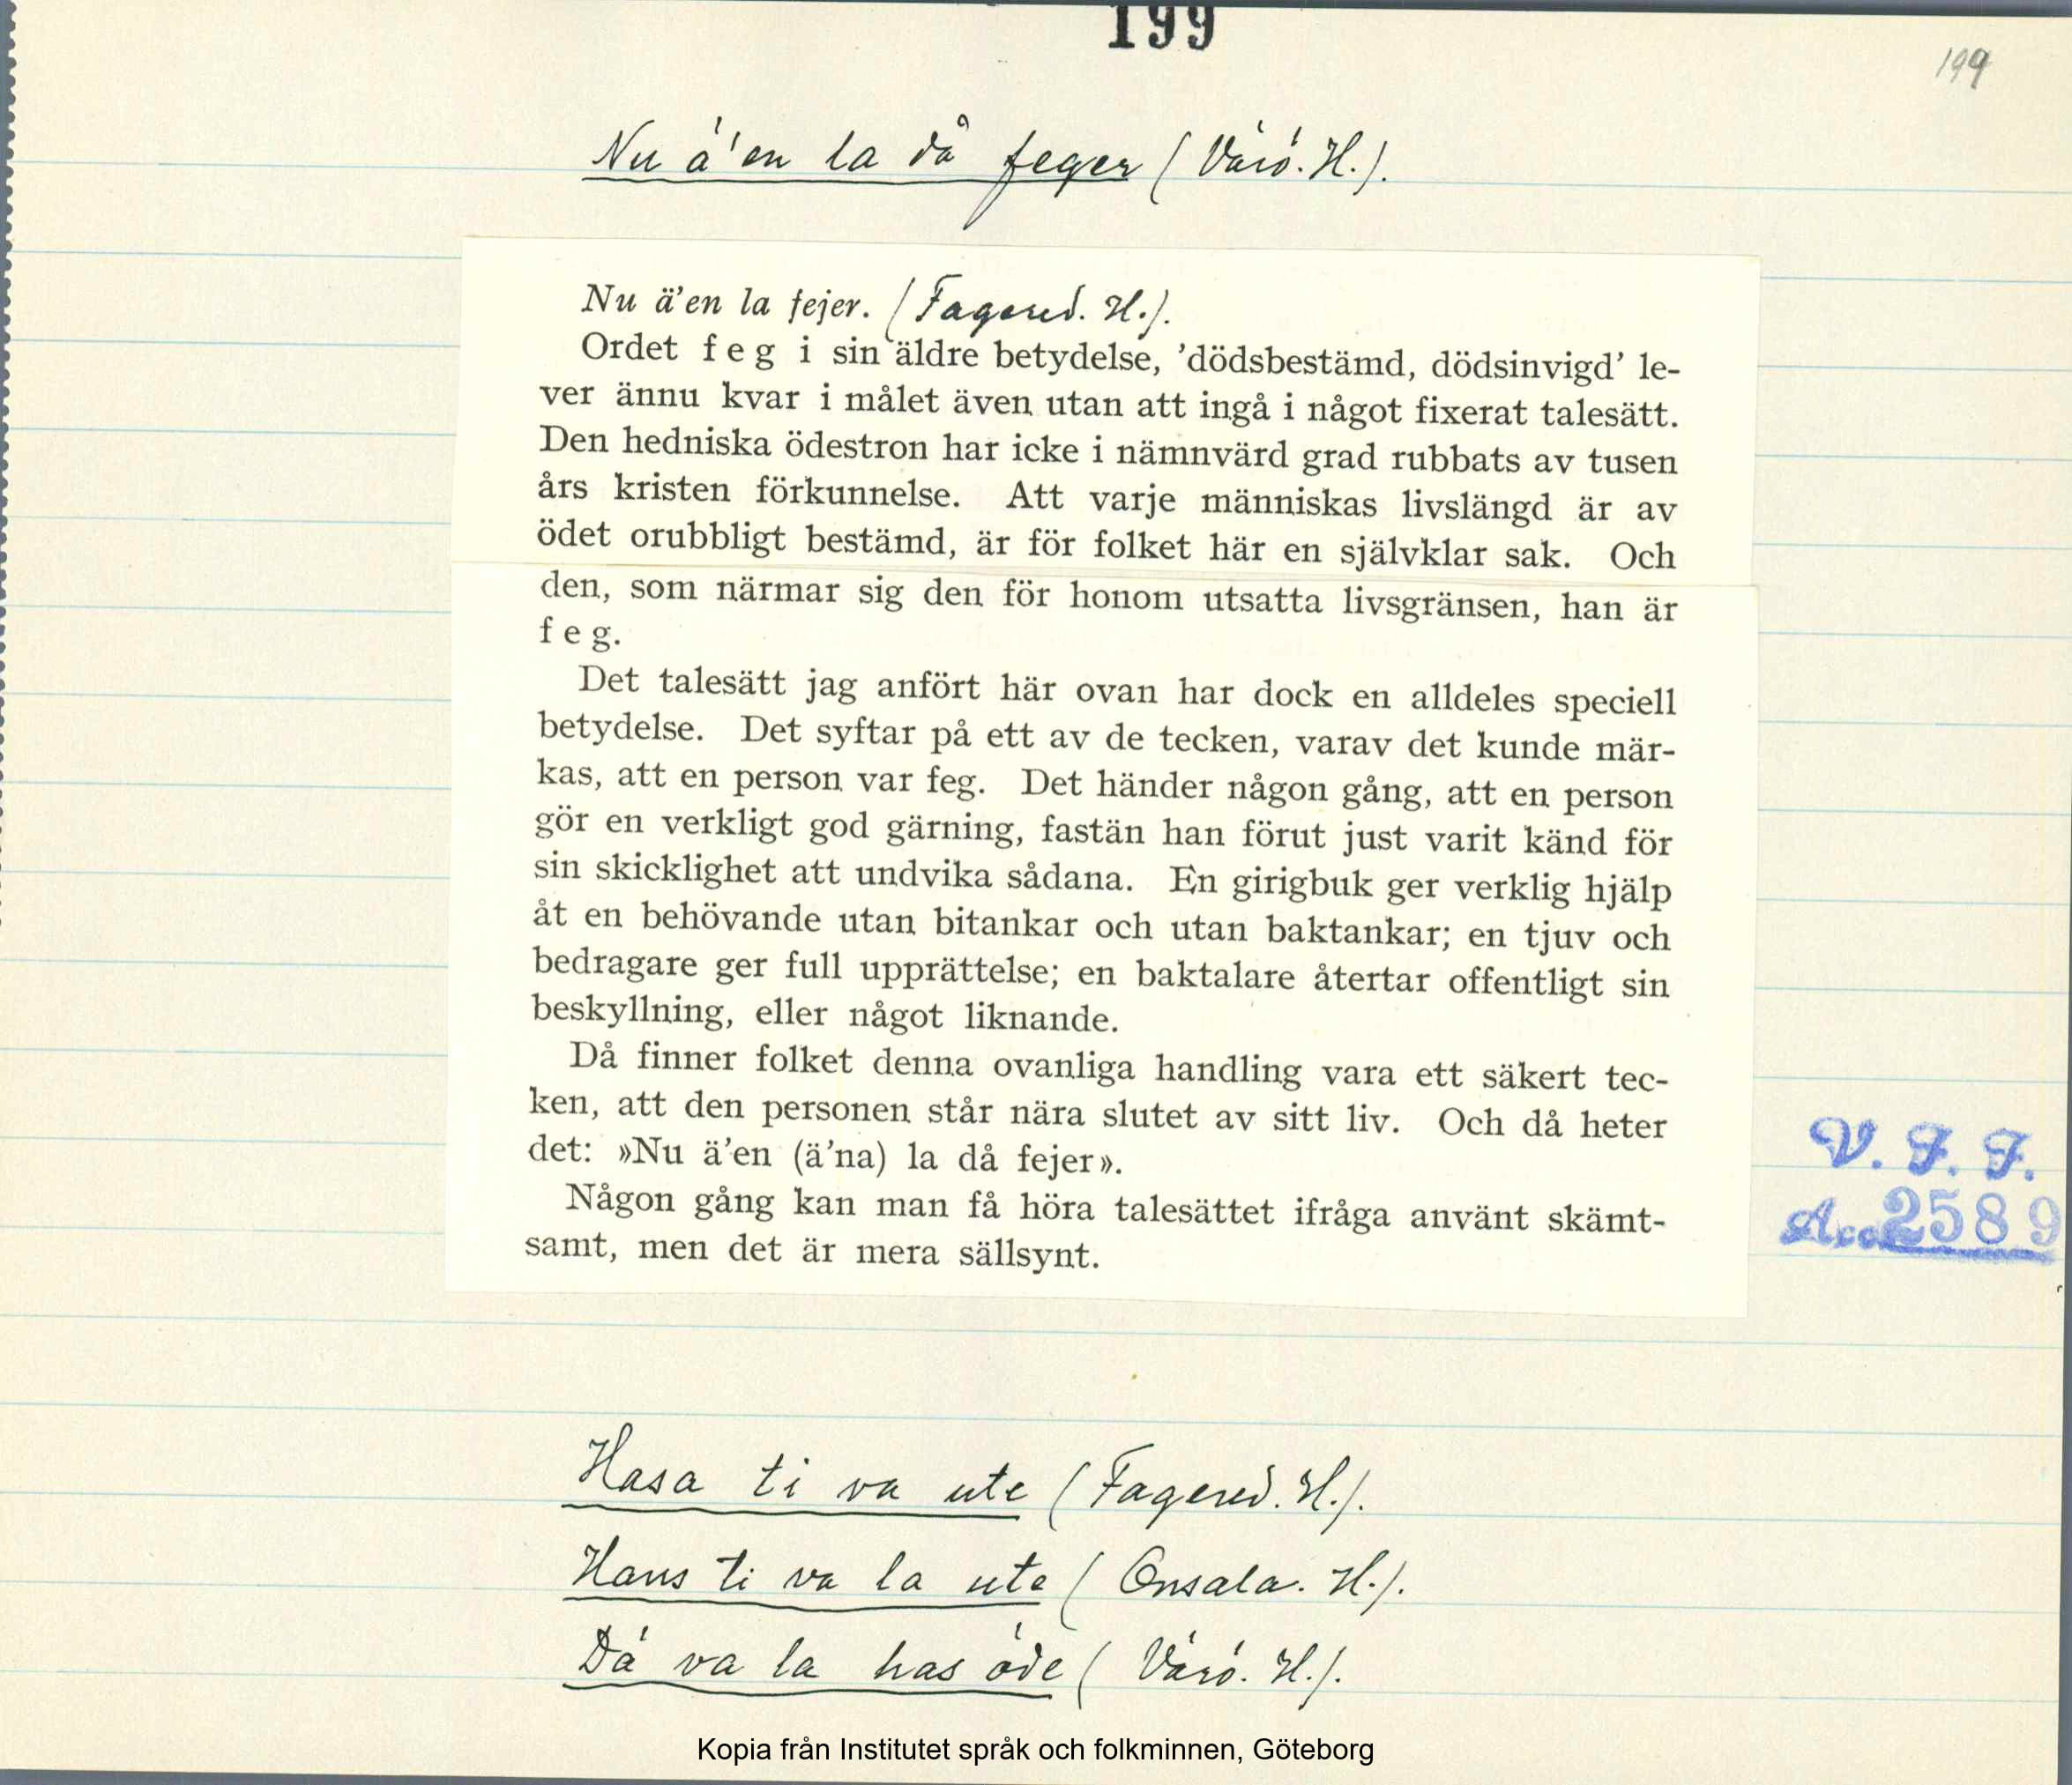 199
199
Nu ä'en la då feger (Värö. H.).
Nu ä'en la fejer. (Fagered. H.).
Ordet feg i sin äldre betydelse, 'dödsbestämd, dödsinvigd' le-
ver ännu kvar i målet även utan att ingå i något fixerat talesätt.
Den hedniska ödestron har icke i nämnvärd grad rubbats av tusen
års kristen förkunnelse. Att varje människas livslängd är av
ödet orubbligt bestämd, är för folket här en självklar sak. Och
den, som närmar sig den för honom utsatta livsgränsen, han är
feg.
Det talesätt jag anfört här ovan har dock en alldeles speciell
betydelse. Det syftar på ett av de tecken, varav det kunde mär-
kas, att en person var feg. Det händer någon gång, att en person
gör en verkligt god gärning, fastän han förut just varit känd för
sin skicklighet att undvika sådana. En girigbuk ger verklig hjälp
åt en behövande utan bitankar och utan baktankar; en tjuv och
bedragare ger full upprättelse; en baktalare återtar offentligt sin
beskyllning, eller något liknande.
Då finner folket denna ovanliga handling vara ett säkert tec-
ken, att den personen står nära slutet av sitt liv. Och då heter
det: »Nu ä'en (ä'na) la då fejer».
Någon gång kan man få höra talesättet ifråga använt skämt-
samt, men det är mera sällsynt.
V. F. F.
Acc. 2589
Hasa ti va ute (Fagered. H.).
Hans ti va la ute (Onsala. H.).
Dä va la has öde (Värö. H.).
Kopia från Institutet språk och folkminnen, Göteborg